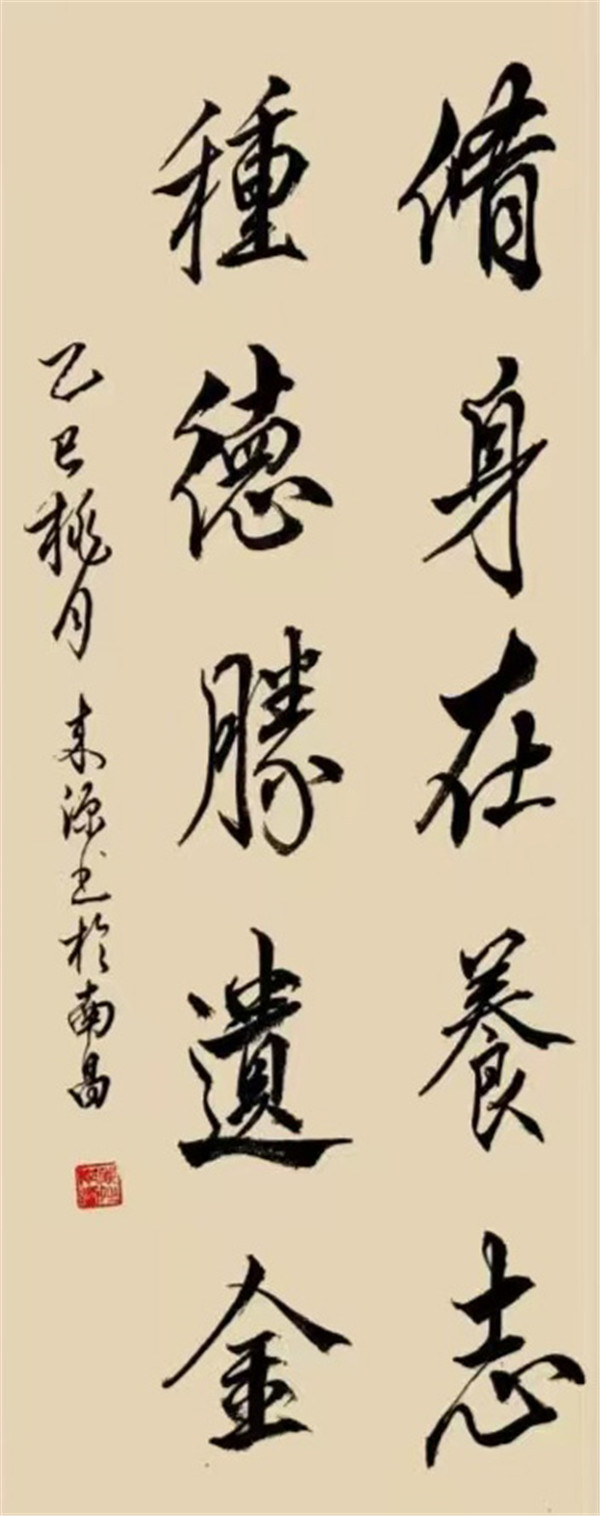 脩身在養志
種德勝遺金
乙巳桃月 来源书於南昌